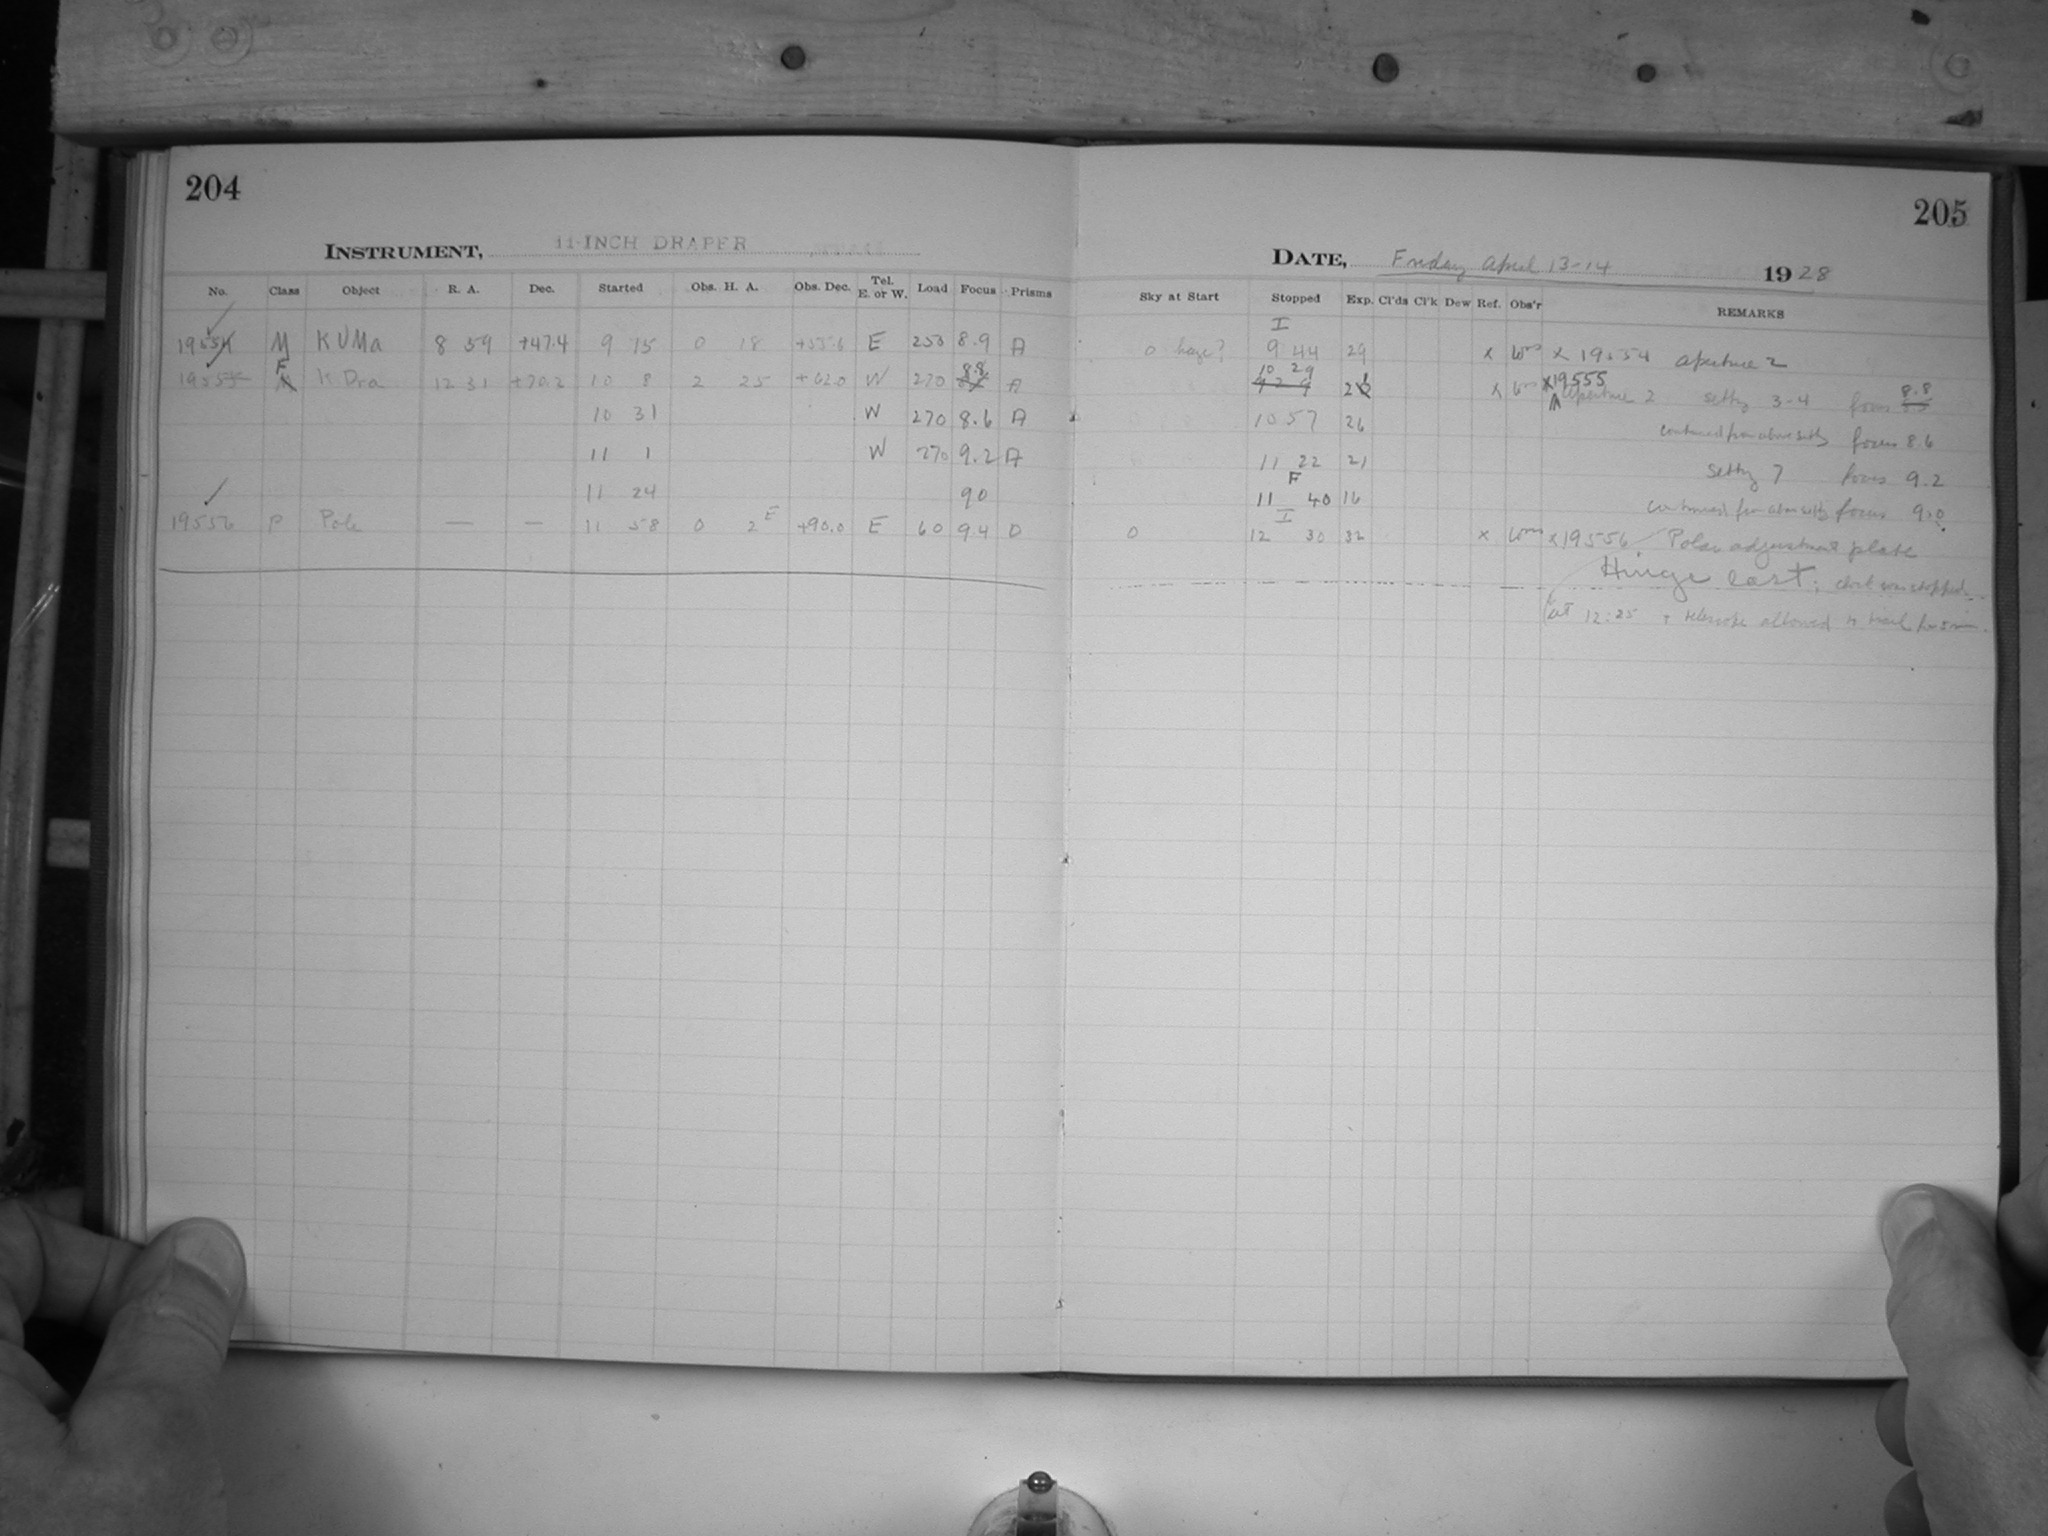 204
INSTRUMENT, 11-INCH DRAPER
No. Class Object R. A. Dec. Started Obs. H. A. Obs. Dec. Tel. E. or W. Load Focus Prisms
19554 M K UMa 8 59 +47.4 9 15 0 18 +55.6 E 253 8.9 A
F 8.8
19555 K Dra 12 31 +70.2 10 8 2 25 +62.0 W 270 A
10 31 W 270 8.6 A
11 1 W 270 9.2 A
11 24 90
19556 P Pole — — 11 58 0 2 E +90.0 E 60 9.4 D
205
DATE, Friday April 13-14 1928
Sky at Start Stopped Exp. Cl'ds Cl'k Dew Ref. Obs'r REMARKS
I
0 haze? 9 44 29 x x 19554 aperture 2
10 29 x19555 8.8
9 29 21 x aperture 2 setting 3-4 focus 8.5
10 57 26 continued from above setting focus 8.6
11 22 21 setting 7 focus 9.2
F
11 40 16 continued from above setting focus 9.0
I
0 12 30 32 x x19556 Polar adjustment plate
Hinge east; clock was stopped
at 12:25 + telescope allowed to trail for 5 min.